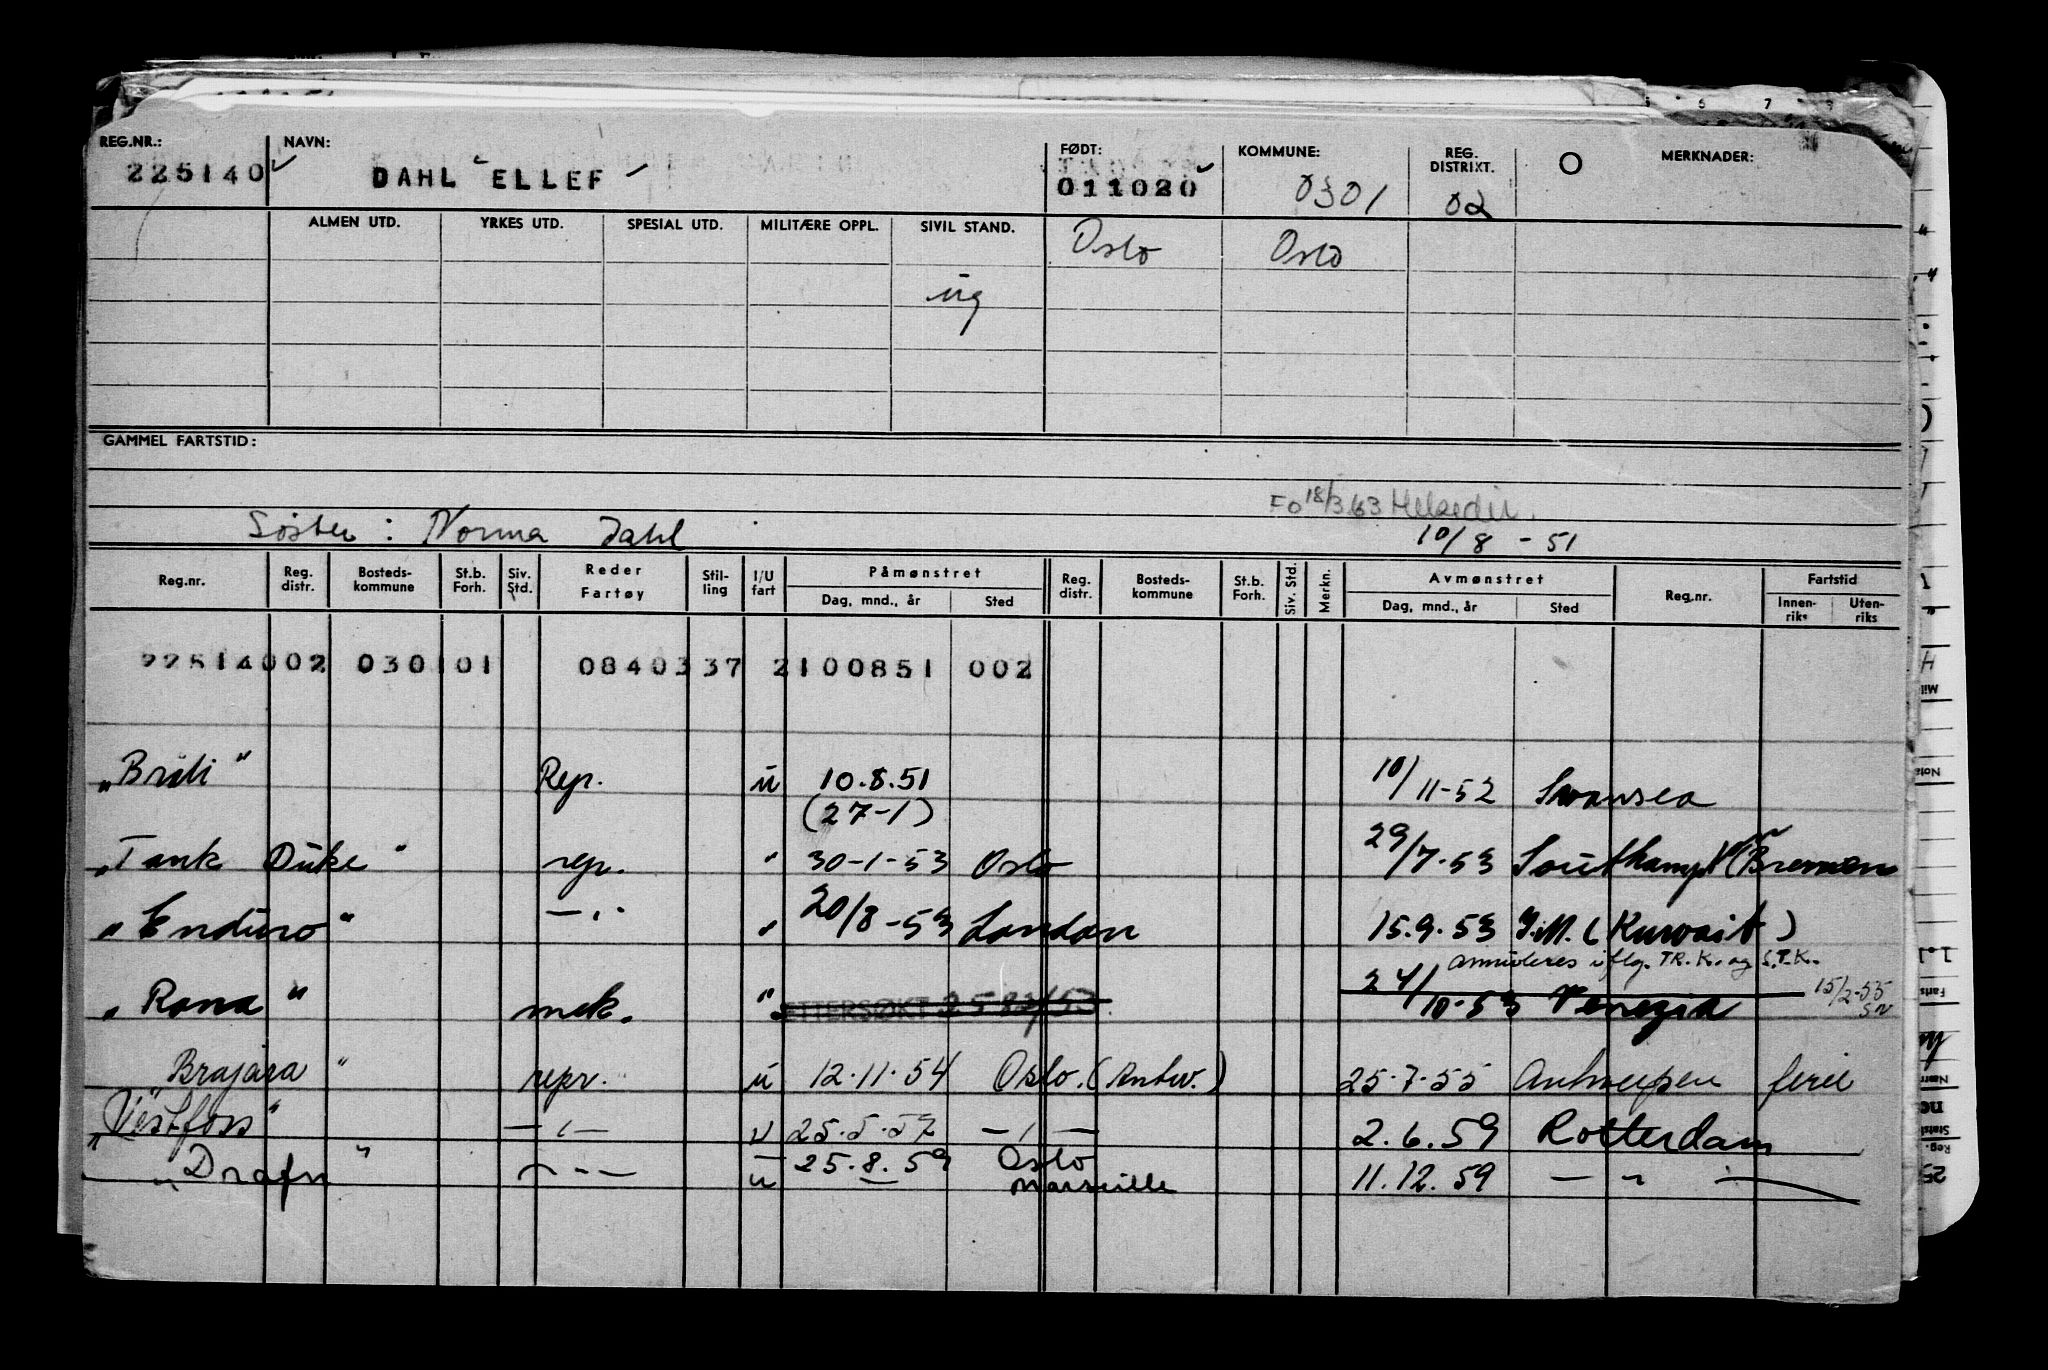 REG.NR.: NAVN: FØDT: KOMMUNE: REG. DISTRIKT. MERKNADER:
225140 DAHL ELLEF 011020 0301 02
ALMEN UTD. YRKES UTD. SPESIAL UTD. MILITÆRE OPPL. SIVIL STAND. Oslo Oslo
ug
GAMMEL FARTSTID:
FO 18/3.63 Helsedir.
Søster: Norma Dahl 10/8 - 51
Reg.nr. Reg. distr. Bosteds- kommune St.b. Forh. Siv. Std. Reder Fartøy Stil- ling I/U fart Påmønstret Reg. distr. Bosteds- kommune St.b. Forh. Siv. Std. Merkn. Avmønstret Reg.nr. Fartstid
Dag, mnd., år Sted Dag, mnd., år Sted Innen- riks Uten- riks
22514002 030101 0840337 2100851 002
Rep. u 10.8.51 10/11-52 Swansea
(27-1)
"Tank Duke" rep. " 30-1-53 Oslo 29/7-53 Southampton (Bremen
"Enduro" -"- " 20/8-53 London 15.9.53 (Kuwait)
Annulleres iflg. TR.K. og S.T.K.
"Rona" mek. " ETTERSØKT 24/10-53 Venezia 15/2-55 SN
"Brajara" repr. u 12.11.54 Oslo. (Antw.) 25.7.55 Antwerpen ferie
"Vestfoss" -"- u 25.5.57 -"- 2.6.59 Rotterdam
"Drafn" -"- u 25.8.59 Oslo 11.12.59 -"-
Marseille